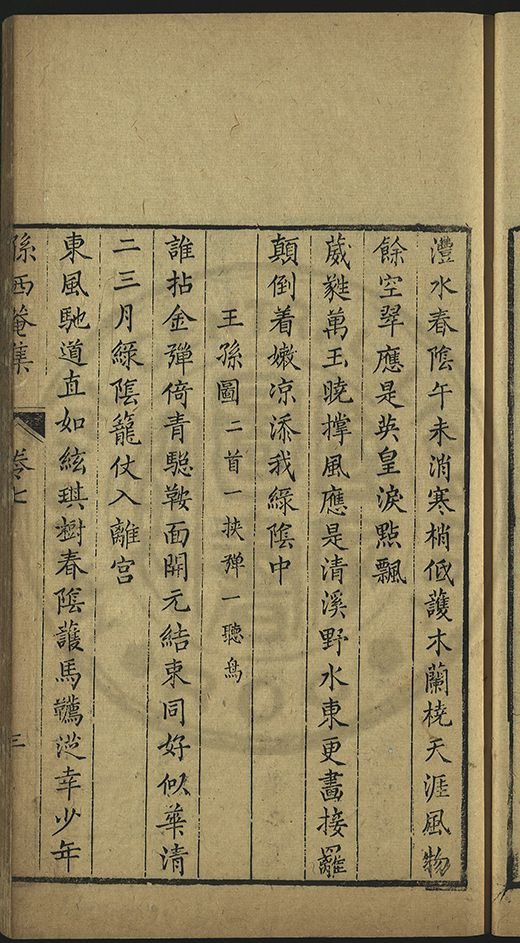 灃水春陰午未消寒梢低護木蘭橈天涯風物
餘空翠應是英皇淚點飄
葳蕤萬玉曉撑風應是清溪野水東更畫接䍦
顛倒着嫩凉添我綠陰中
王孫圖二首一挾彈一聽鳥
誰拈金彈倚青驄鞍面開元結束同好似華清
二三月綠陰籠仗入離宮
東風馳道直如絃琪樹春陰護馬韉從幸少年
孫西菴集 卷七 三